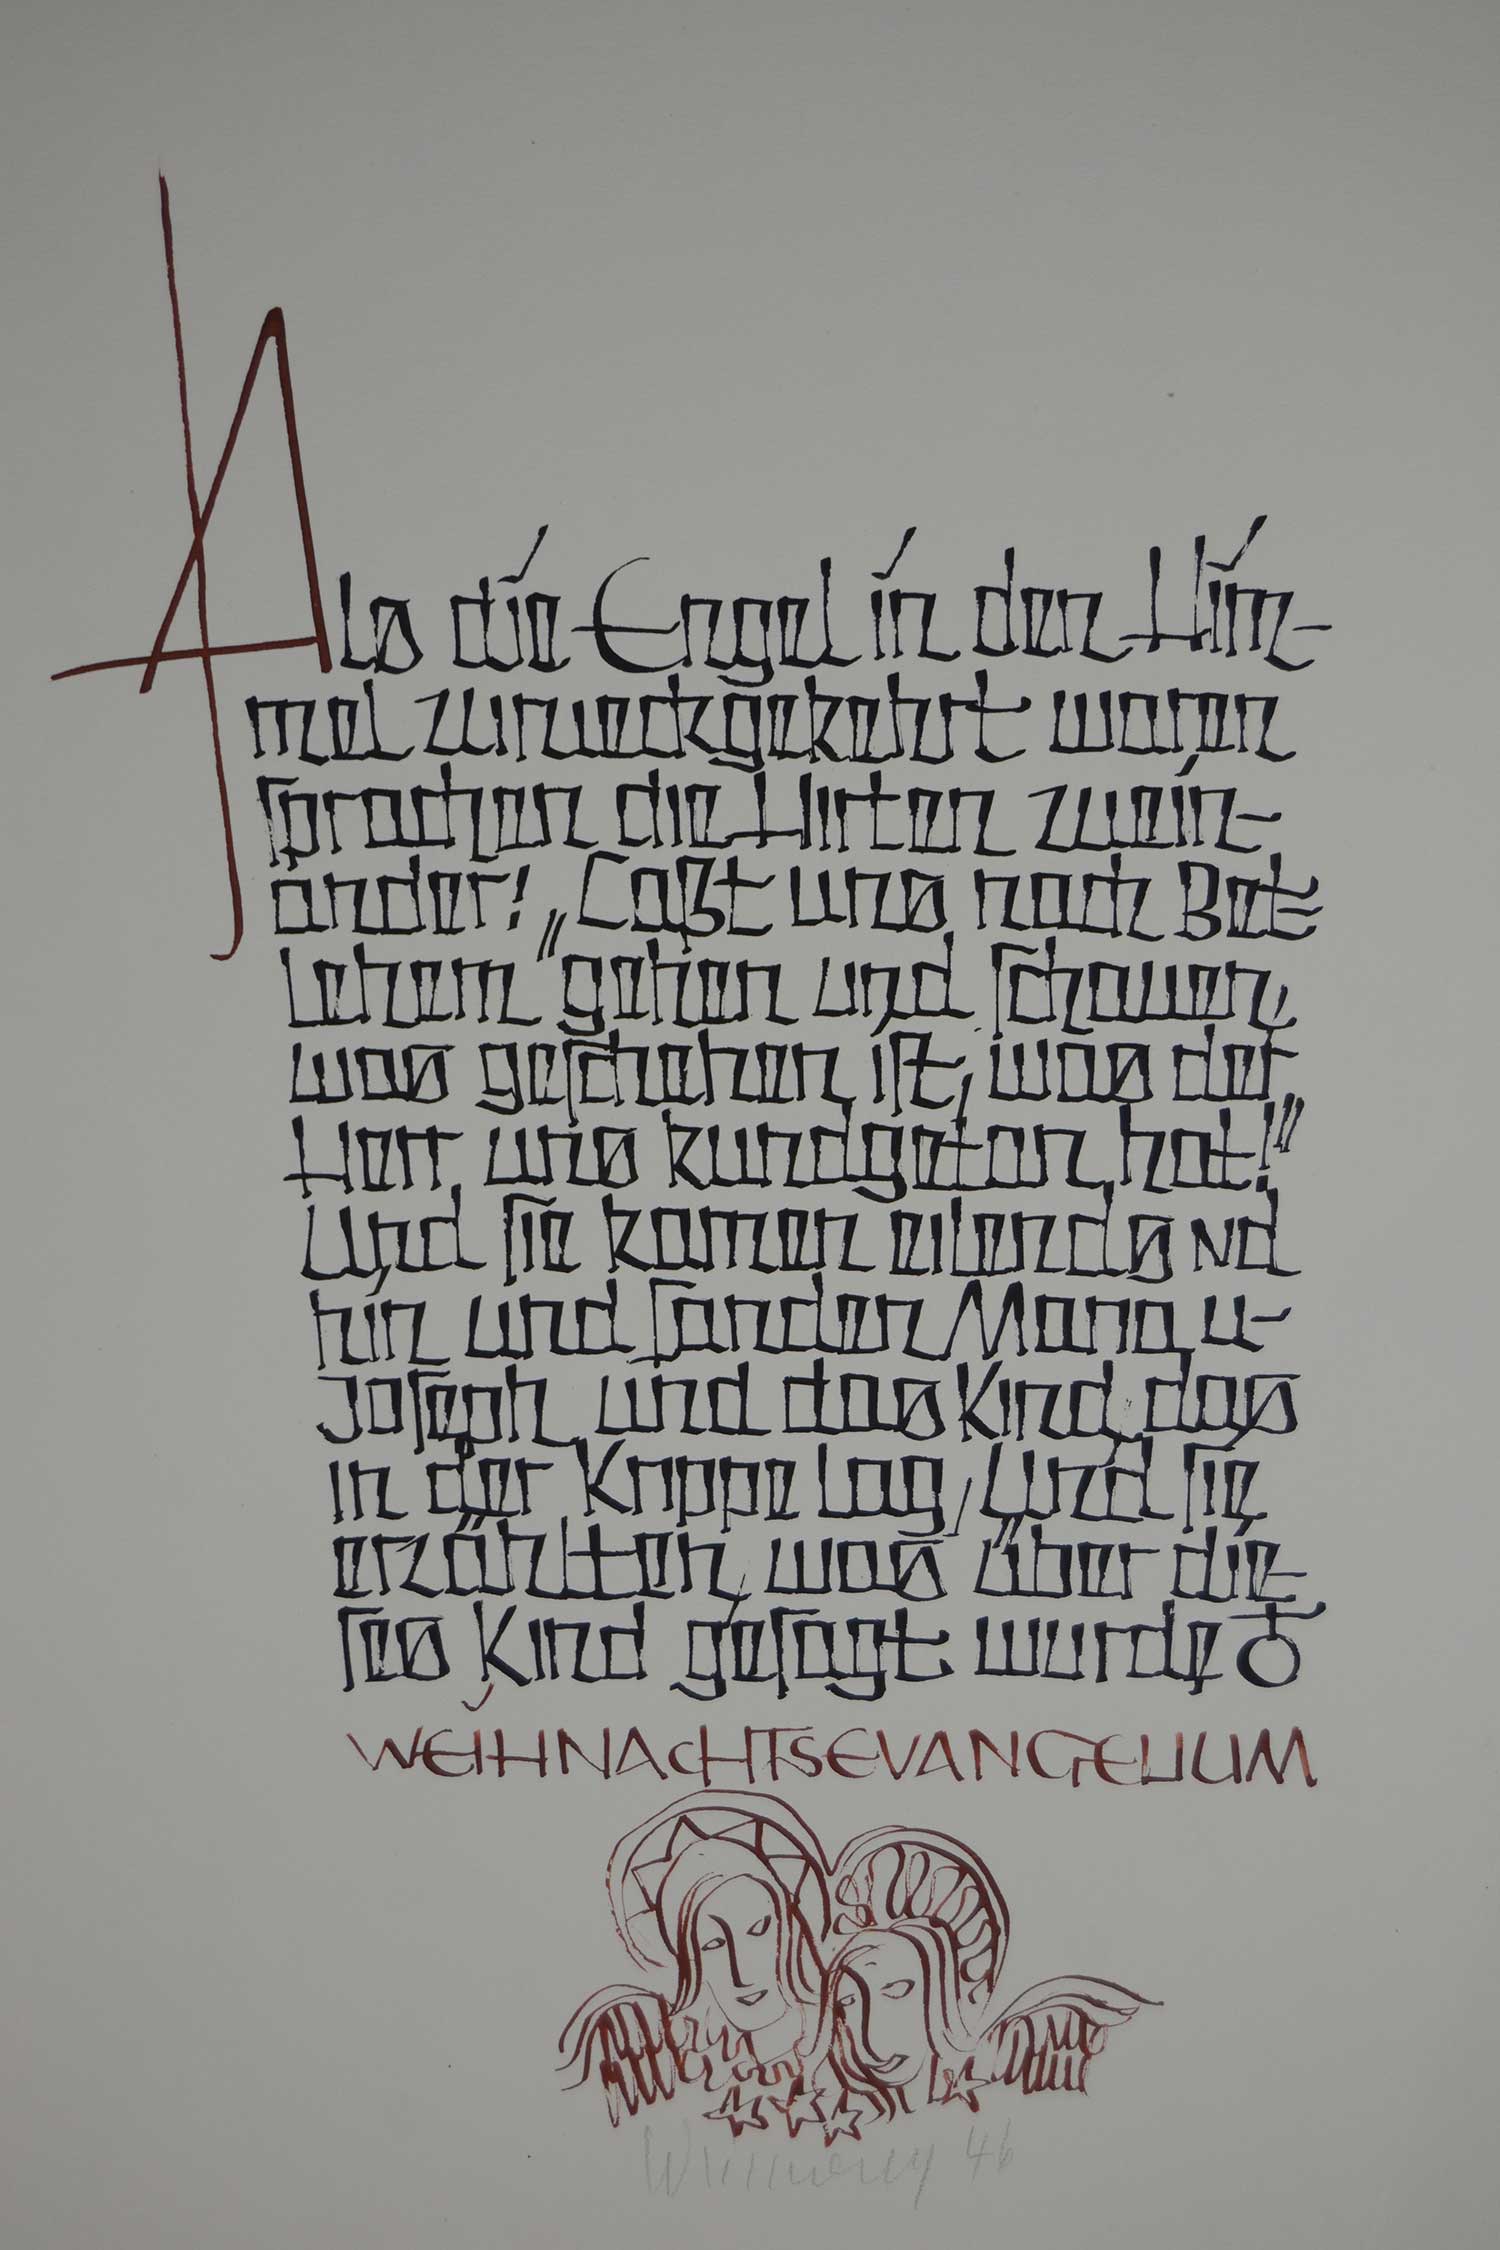 Als die Engel in den Him-
mel zurueckgekehrt waren
sprachen die Hirten zuein-
ander! „Laßt uns nach Bet=
lehem" gehen und schauen,
was geschehen ist, was der
Herr uns kundgetan hat!"
Und sie kamen eilends nd
hin und fanden Maria u-
Joseph und das Kind, das
in der Krippe lag, Und sie
erzählten, was über die-
ses Kind gesagt wurde
WEIHNACHTSEVANGELIUM
46